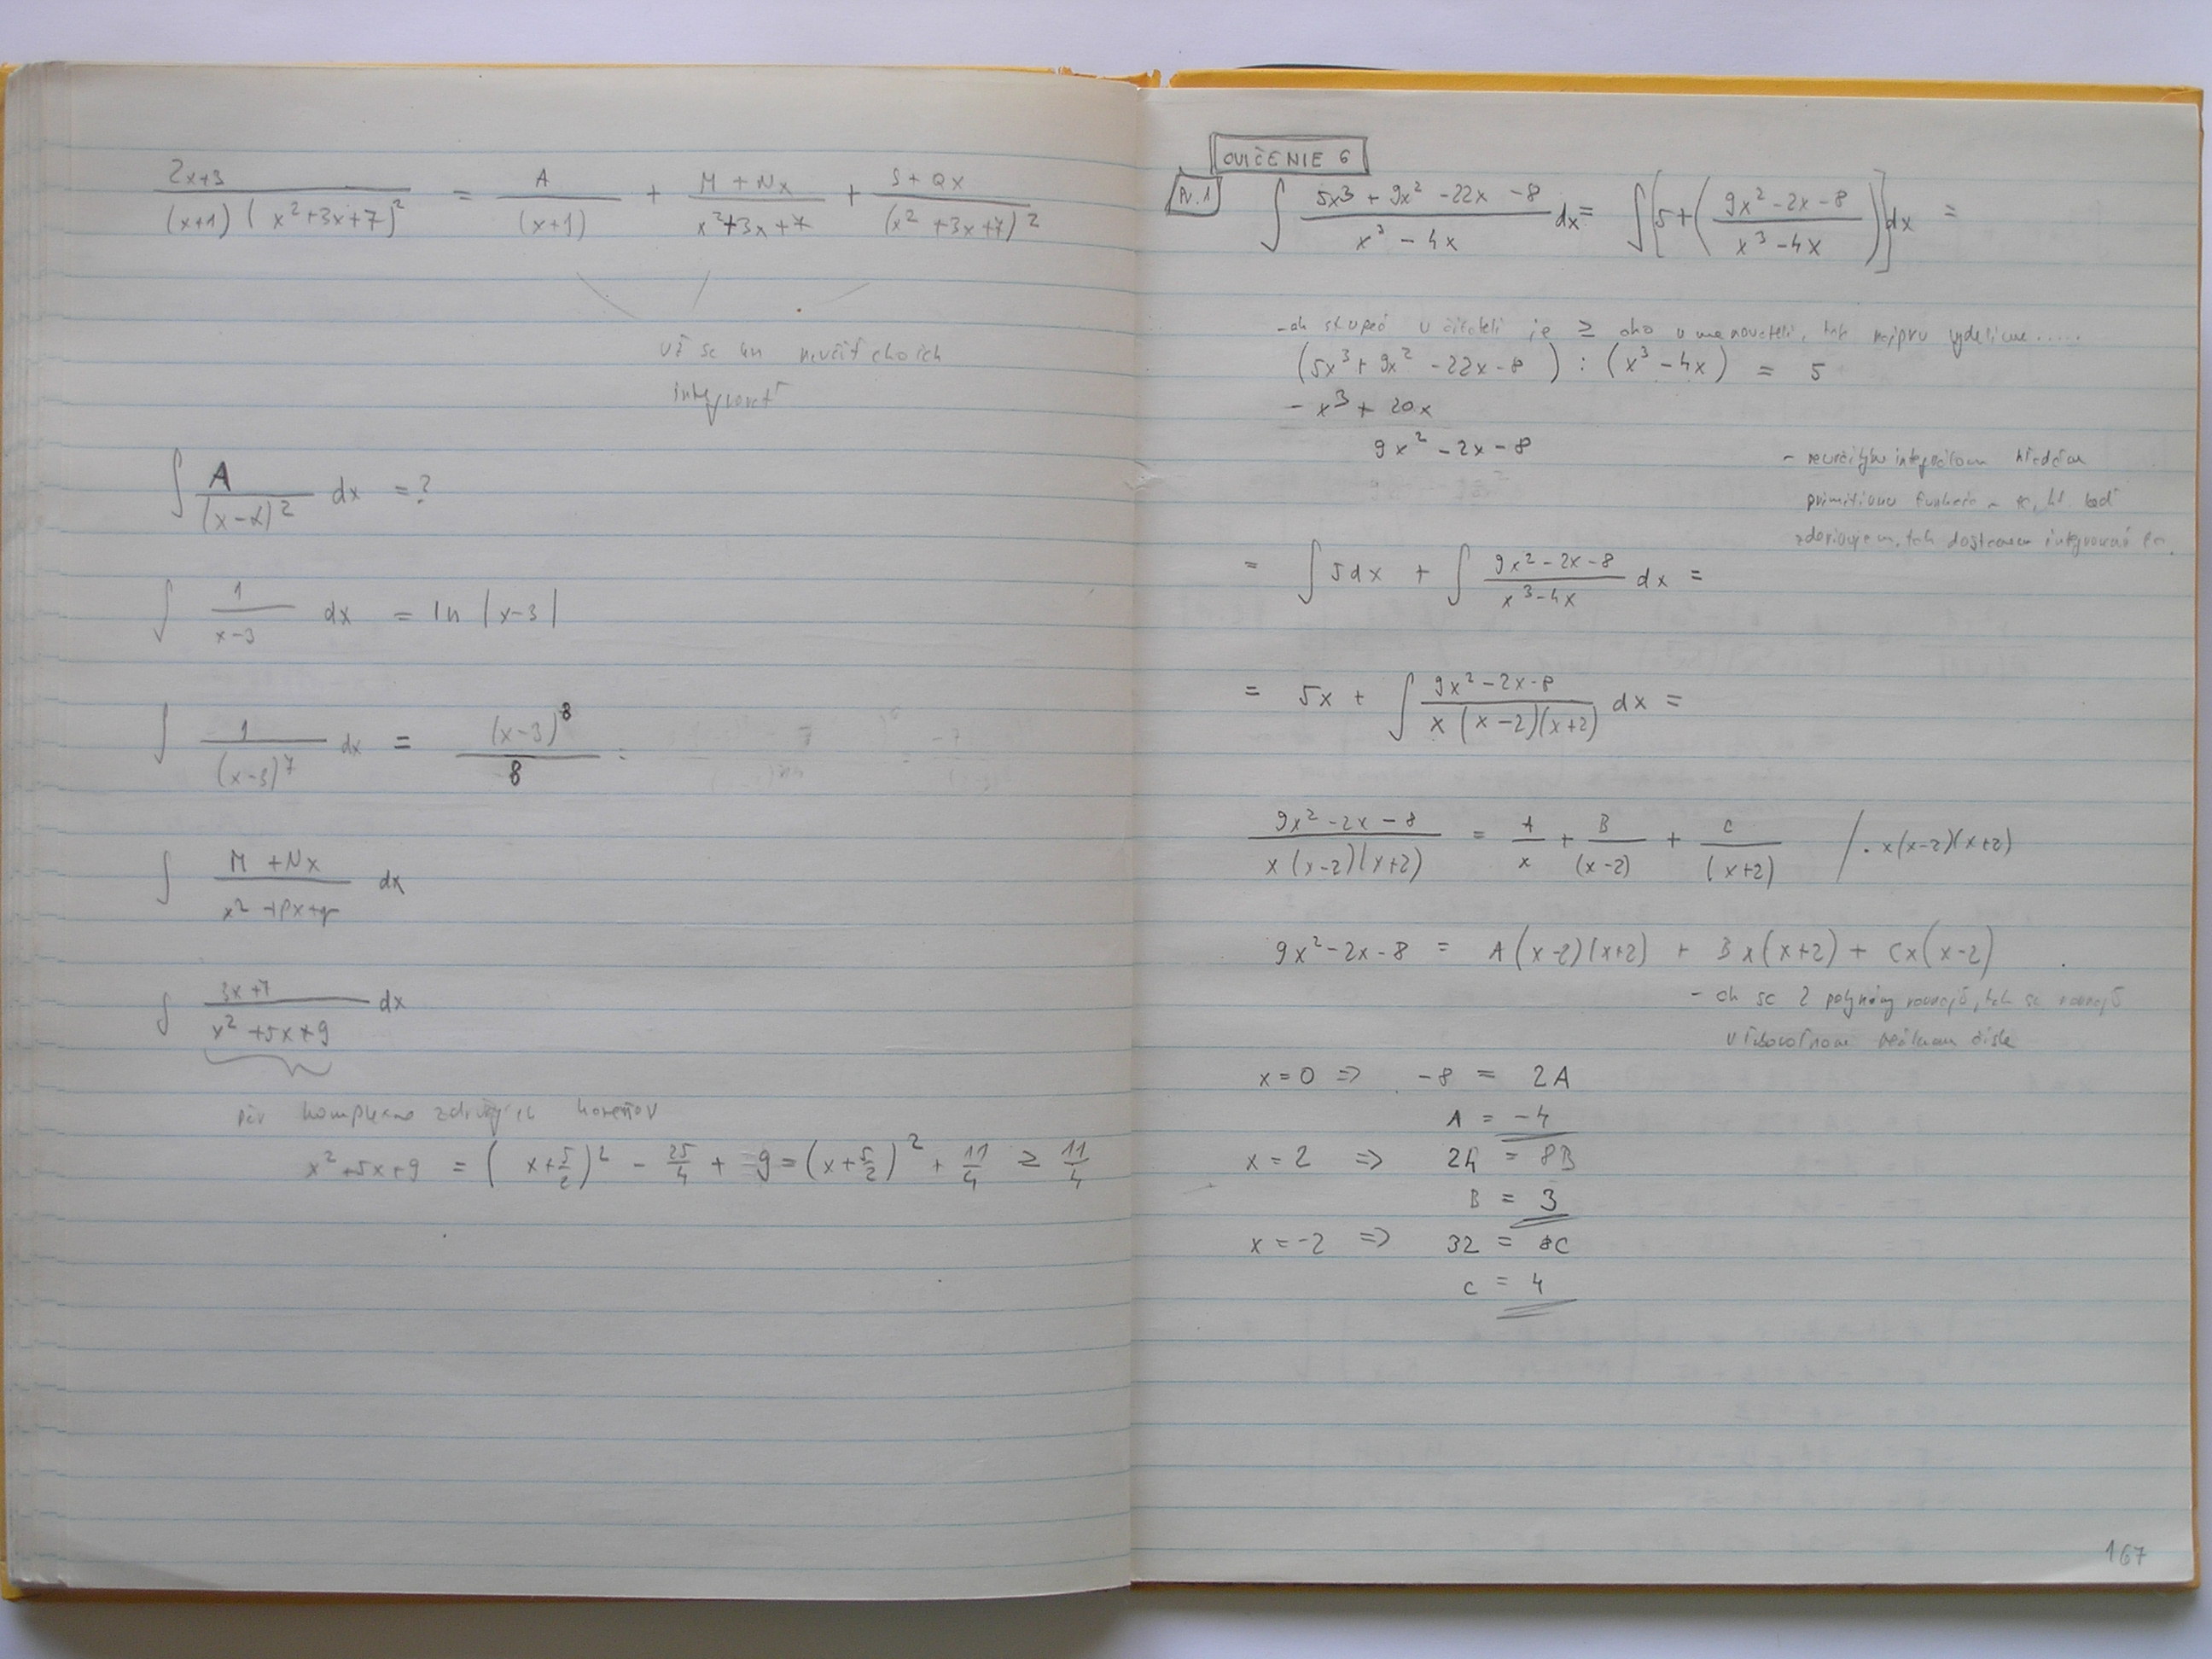 2x+3 / (x+1)(x²+3x+7)² = A / (x+1) + M+Nx / x²+3x+7 + S+Qx / (x²+3x+7)²
už sa
integrovať
∫ A / (x-α)² dx = ?
∫ 1 / x-3 dx = ln |x-3|
∫ 1 / (x-3)⁷ dx = (x-3)⁸ / 8
∫ M+Nx / x²+px+q dx
∫ 3x+7 / x²+5x+9 dx
komplexne združených koreňov
x²+5x+9 = (x+5/2)² - 25/4 + 9 = (x+5/2)² + 11/4 ≥ 11/4
CVIČENIE 6
Pr. 1
∫ 5x³+9x²-22x-8 / x³-4x dx = ∫ [5+(9x²-2x-8 / x³-4x)] dx =
-ak stupeň v čitateli je ≥ ako v menovateli, tak najprv vydelíme.....
(5x³+9x²-22x-8) : (x³-4x) = 5
- x³+20x
9x²-2x-8
- neurčitým integrálom hľadám
primitívnu funkciu
= ∫ 5dx + ∫ 9x²-2x-8 / x³-4x dx =
= 5x + ∫ 9x²-2x-8 / x(x-2)(x+2) dx =
9x²-2x-8 / x(x-2)(x+2) = A / x + B / (x-2) + C / (x+2) /. x(x-2)(x+2)
9x²-2x-8 = A(x-2)(x+2) + Bx(x+2) + Cx(x-2)
- ak sa 2 polynómy rovnajú, tak sa rovnajú
v ľubovoľnom reálnom čísle
x=0 => -8 = 2A
A = -4
x=2 => 24 = 8B
B = 3
x=-2 => 32 = 8C
C = 4
167